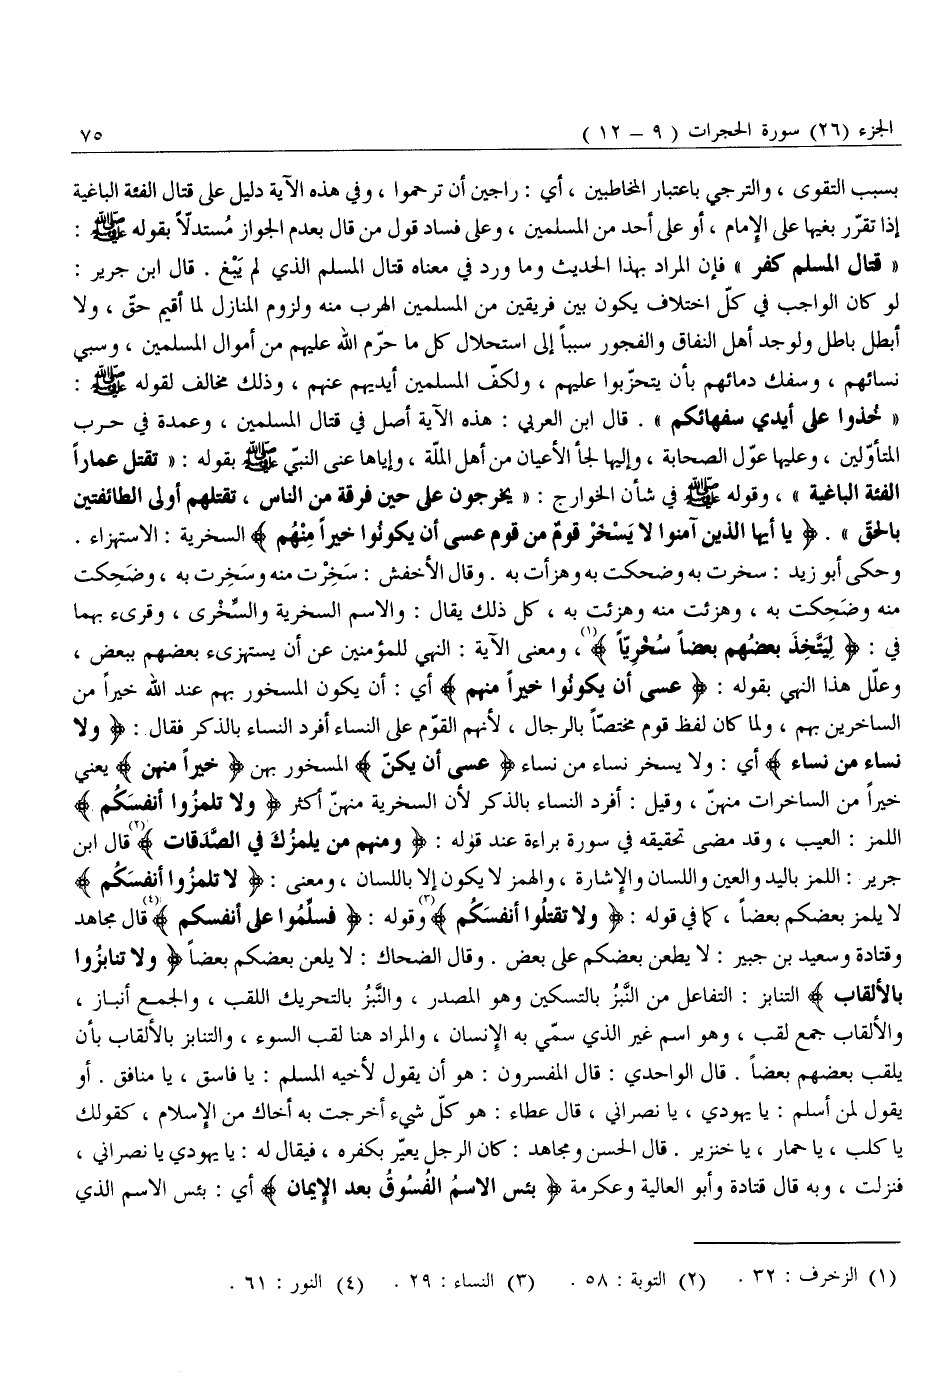 الجزء (٢٦) سورة الحجرات ( ٩ – ١٢ ) ٧٥
بسبب التقوى ، والترجي باعتبار المخاطبين ، أي : راجين أن ترحموا ، وفي هذه الآية دليل على قتال الفئة الباغية
إذا تقرّر بغيها على الإمام ، أو على أحد من المسلمين ، وعلى فساد قول من قال بعدم الجواز مُستدلّاً بقوله ﷺ :
« قتال المسلم كفر » فإن المراد بهذا الحديث وما ورد في معناه قتال المسلم الذي لم يَبْغ . قال ابن جرير :
لو كان الواجب في كلّ اختلاف يكون بين فريقين من المسلمين الهرب منه ولزوم المنازل لما أقيم حقّ ، ولا
أبطل باطل ولوجد أهل النفاق والفجور سبباً إلى استحلال كل ما حرّم الله عليهم من أموال المسلمين ، وسبي
نسائهم ، وسفك دمائهم بأن يتحزّبوا عليهم ، ولكفّ المسلمين أيديهم عنهم ، وذلك مخالف لقوله ﷺ :
« خُذوا على أيدي سفهائكم » . قال ابن العربي : هذه الآية أصل في قتال المسلمين ، وعمدة في حرب
المتأوّلين ، وعليها عوّل الصحابة ، وإليها لجأ الأعيان من أهل الملّة ، وإياها عنى النبيّ ﷺ بقوله : « تقتل عماراً
الفئة الباغية » ، وقوله ﷺ في شأن الخوارج : « يخرجون على حين فرقة من الناس ، تقتلهم أولى الطائفتين
بالحقّ » . ﴿ يا أيها الذين آمنوا لا يَسْخَرْ قومٌ من قوم عسى أن يكونُوا خيراً مِنْهُم ﴾ السخرية : الاستهزاء .
وحكى أبو زيد : سخرت به وضحكت به وهزأت به . وقال الأخفش : سَخِرْت منه وسَخِرت به ، وضَحِكت
منه وضَحِكت به ، وهزئت منه وهزئت به ، كل ذلك يقال : والاسم السخرية والسُّخْرى ، وقرىء بهما
في : ﴿ لِيَتَّخِذَ بعضُهم بعضاً سُخْرِيّاً ﴾(١) ، ومعنى الآية : النهي للمؤمنين عن أن يستهزىء بعضهم ببعض ،
وعلّل هذا النهي بقوله : ﴿ عسى أن يكونُوا خيراً منهم ﴾ أي : أن يكون المسخور بهم عند الله خيراً من
الساخرين بهم ، ولما كان لفظ قوم مختصّاً بالرجال ، لأنهم القوّم على النساء أفرد النساء بالذكر فقال : ﴿ ولا
نساء من نساء ﴾ أي : ولا يسخر نساء من نساء ﴿ عسى أن يكنّ ﴾ المسخور بهن ﴿ خيراً منهن ﴾ يعني
خيراً من الساخرات منهنّ ، وقيل : أفرد النساء بالذكر لأن السخرية منهنّ أكثر ﴿ ولا تلمزُوا أنفسَكُم ﴾
اللمز : العيب ، وقد مضى تحقيقه في سورة براءة عند قوله : ﴿ ومنهم من يلمزُك في الصَّدَقات ﴾(٢) قال ابن
جرير : اللمز باليد والعين واللسان والإشارة ، والهمز لا يكون إلا باللسان ، ومعنى : ﴿ لا تلمزُوا أنفسَكُم ﴾
لا يلمز بعضكم بعضاً ، كما في قوله : ﴿ ولا تقتلُوا أنفسَكُم ﴾(٣) وقوله : ﴿ فسلّمُوا على أنفسكم ﴾(٤) قال مجاهد
وقتادة وسعيد بن جبير : لا يطعن بعضكم على بعض . وقال الضحاك : لا يلعن بعضكم بعضاً ﴿ ولا تنابزُوا
بالألقاب ﴾ التنابز : التفاعل من النَّبزُ بالتسكين وهو المصدر ، والنَّبزُ بالتحريك اللقب ، والجمع أنباز ،
والألقاب جمع لقب ، وهو اسم غير الذي سمّي به الإنسان ، والمراد هنا لقب السوء ، والتنابز بالألقاب بأن
يلقب بعضهم بعضاً . قال الواحدي : قال المفسرون : هو أن يقول لأخيه المسلم : يا فاسق ، يا منافق . أو
يقول لمن أسلم : يا يهودي ، يا نصراني ، قال عطاء : هو كلّ شيء أخرجت به أخاك من الإسلام ، كقولك
يا كلب ، يا حمار ، يا خنزير . قال الحسن ومجاهد : كان الرجل يعيّر بكفره ، فيقال له : يا يهودي يا نصراني ،
فنزلت ، وبه قال قتادة وأبو العالية وعكرمة ﴿ بئس الاسمُ الفُسوُقُ بعد الإيمان ﴾ أي : بئس الاسم الذي
(١) الزخرف : ٣٢ . (٢) التوبة : ٥٨ . (٣) النساء : ٢٩ . (٤) النور : ٦١ .